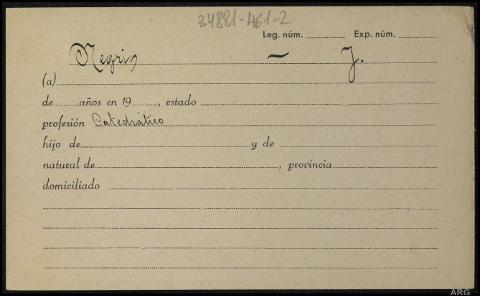 34881-461-2
Leg. núm. Exp. núm.
Negrin — J.
(a)
de años en 19 , estado
profesión Catedrático
hijo de y de
natural de , provincia
domiciliado
ARG